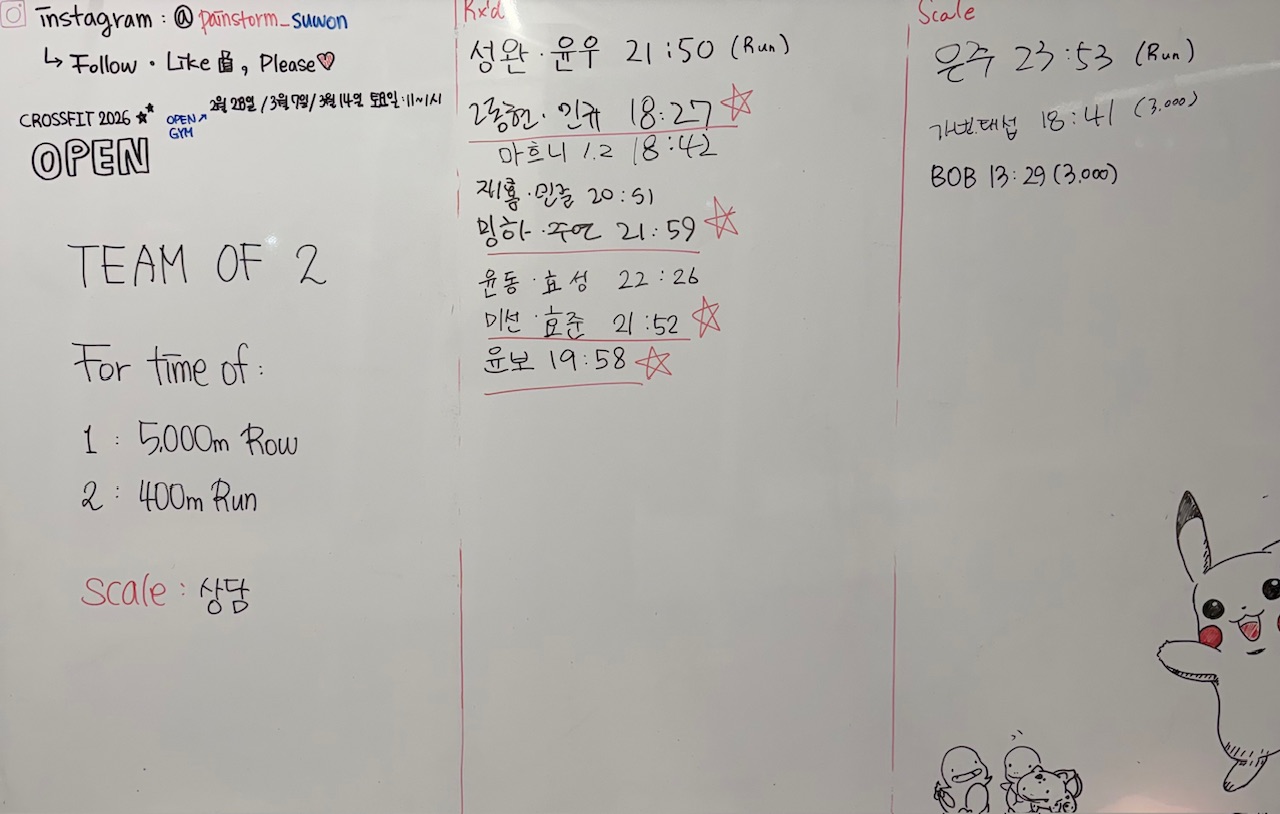 instagram : @ painstorm_suwon
↳ Follow · Like, Please♡
CROSSFIT 2026
OPEN
OPEN↗
GYM
2월 28일 / 3월 7일 / 3월 14일 토요일 : 11~1시
TEAM OF 2
For time of :
1 : 5,000m Row
2 : 400m Run
Scale : 상담
Rx'd
성완 · 윤우 21:50 (Run)
18:27
마흐니 1.2 18:42
재홍 · 민글 20:51
밍하 · 주연 21:59
윤동 · 효성 22:26
미선 · 효준 21:52
윤보 19:58
Scale
은주 23:53 (Run)
태섭 18:41 (3,000)
BOB 13:29 (3,000)